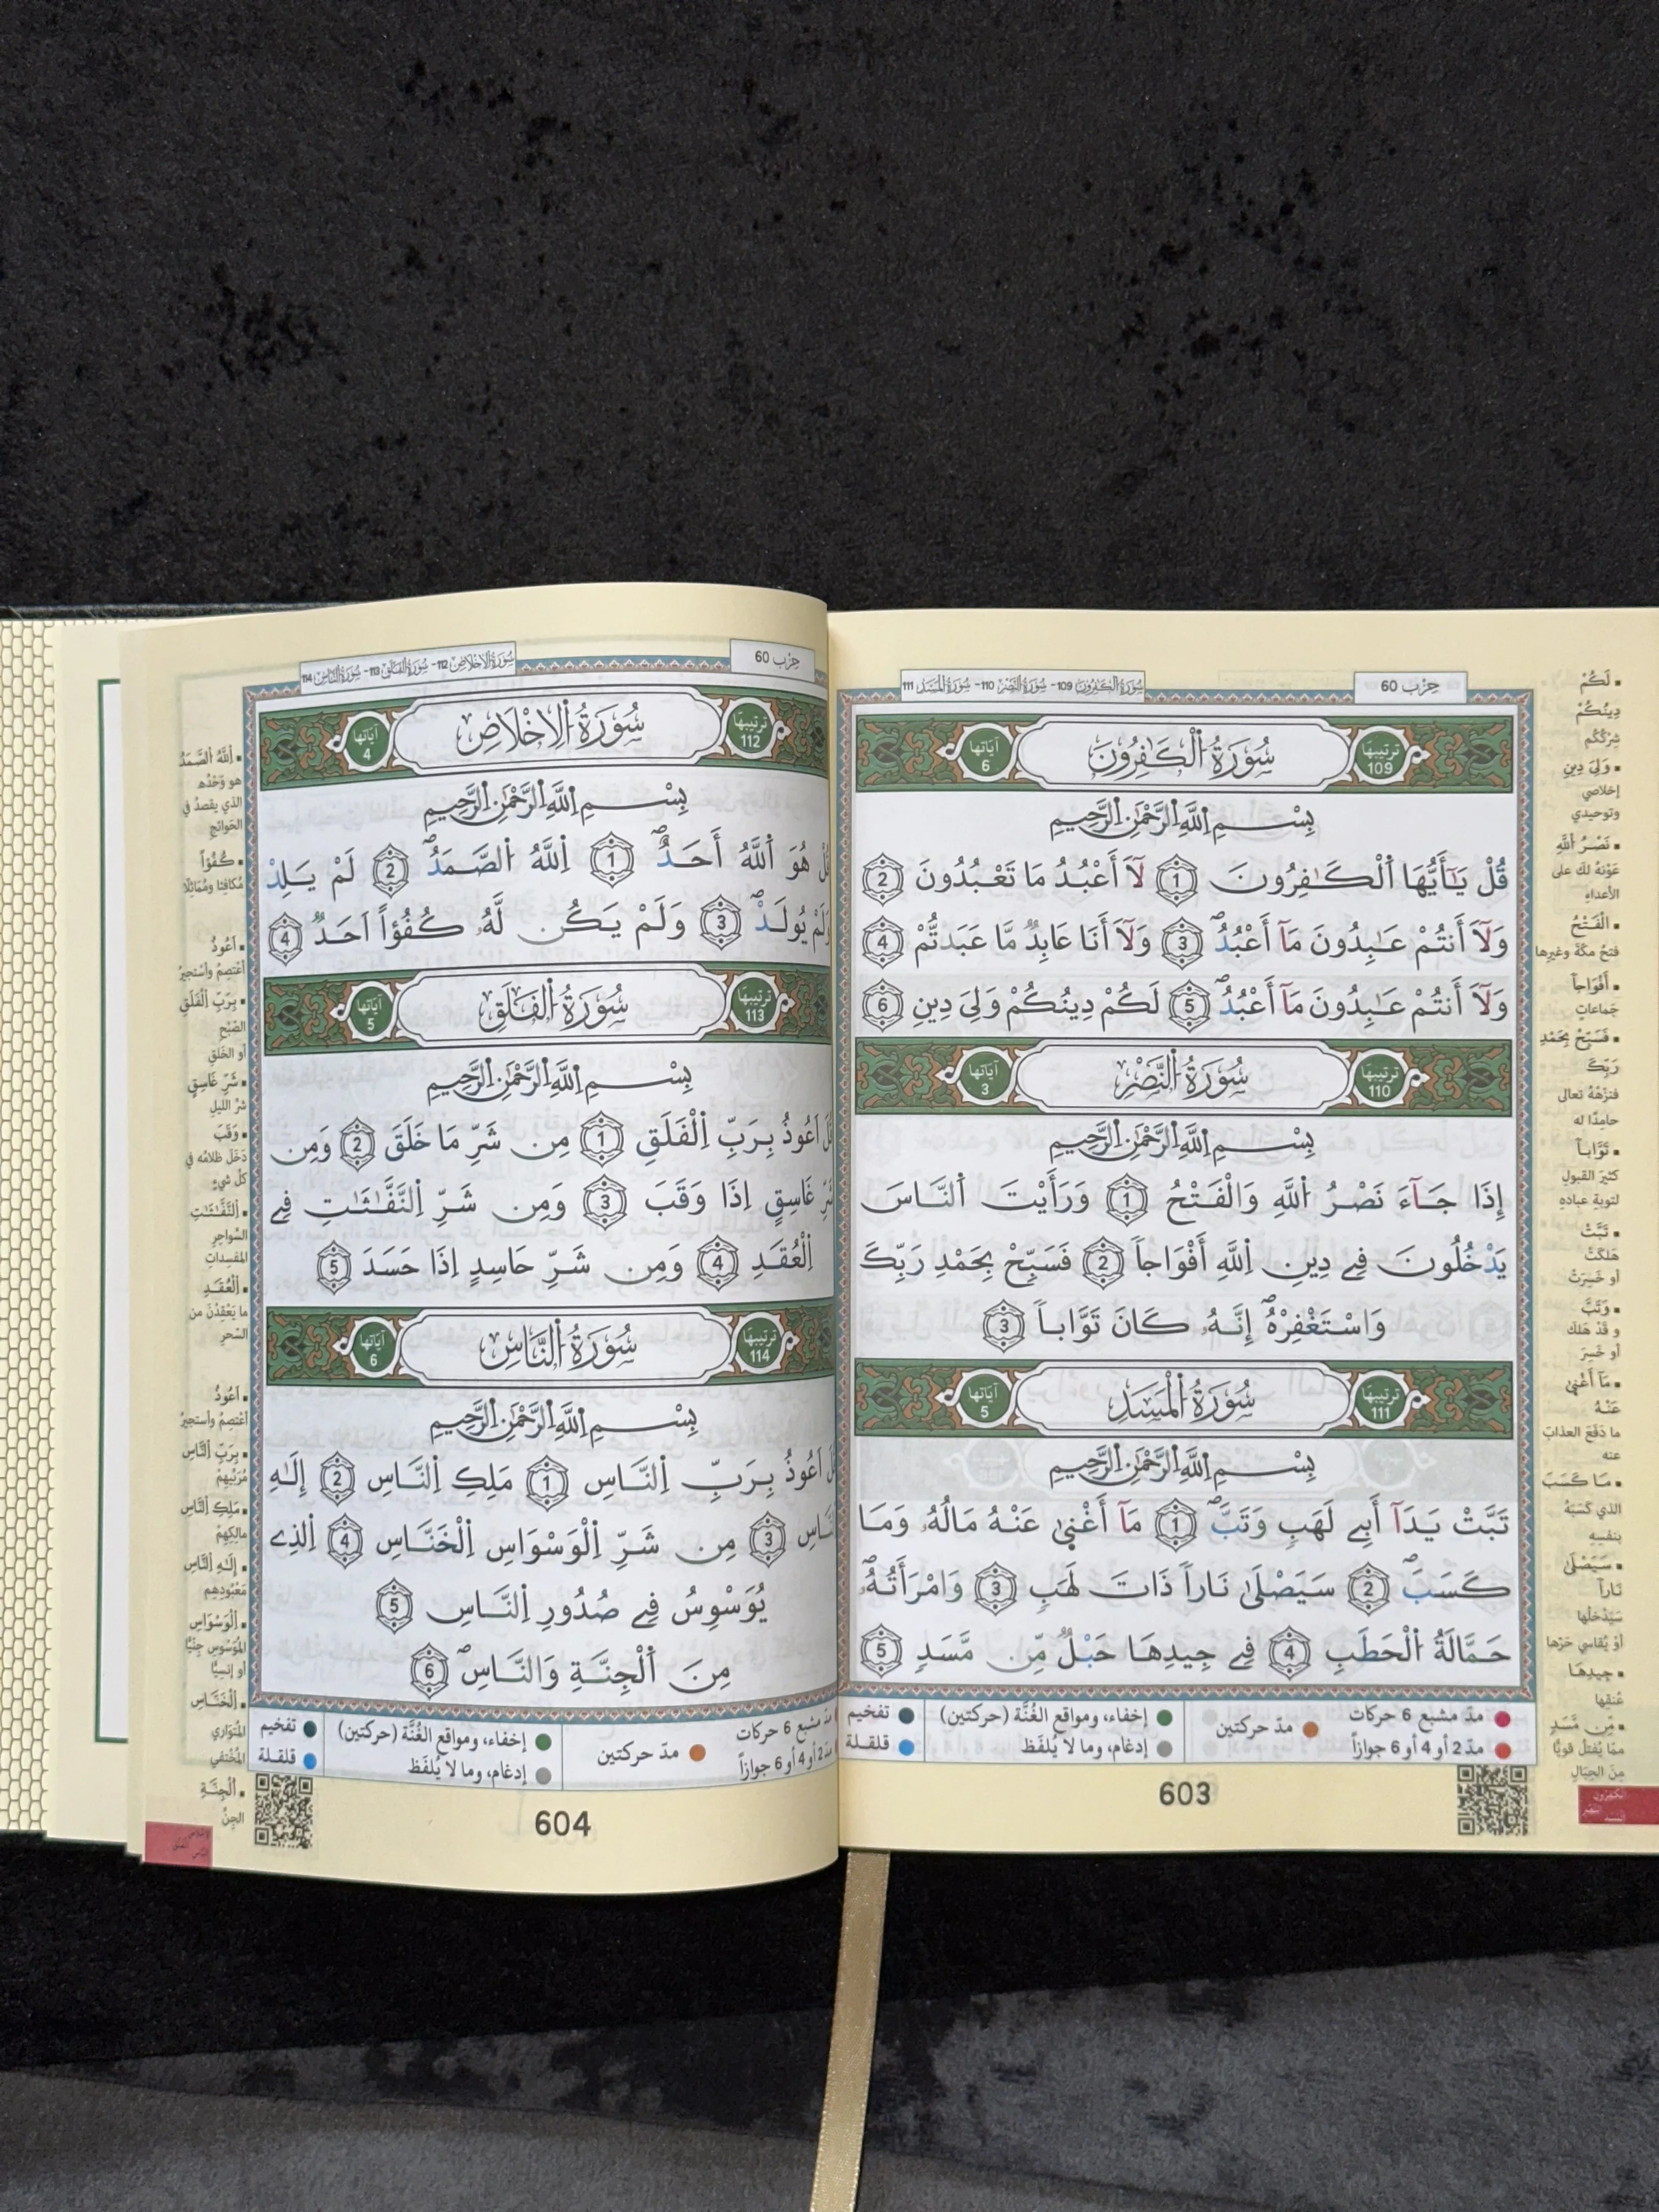 حِزْب 60
سُورَةُ الْكَافِرُونَ 109 - سُورَةُ النَّصْرِ 110 - سُورَةُ الْمَسَدِ 111
ترتيبها 109
سُورَةُ الْكَٰفِرُونَ
آياتها 6
بِسْمِ اِللَّهِ اِلرَّحْمَٰنِ اِلرَّحِيمِ
قُلْ يَٰٓأَيُّهَا اَلْكَٰفِرُونَ 1 لَآ أَعْبُدُ مَا تَعْبُدُونَ 2
وَلَآ أَنتُمْ عَٰبِدُونَ مَآ أَعْبُدُ 3 وَلَآ أَنَا عَابِدٌ مَّا عَبَدتُّمْ 4
وَلَآ أَنتُمْ عَٰبِدُونَ مَآ أَعْبُدُ 5 لَكُمْ دِينُكُمْ وَلِىَ دِينِ 6
ترتيبها 110
سُورَةُ النَّصْرِ
آياتها 3
بِسْمِ اِللَّهِ اِلرَّحْمَٰنِ اِلرَّحِيمِ
إِذَا جَآءَ نَصْرُ اُللَّهِ وَالْفَتْحُ 1 وَرَأَيْتَ اَلنَّاسَ
يَدْخُلُونَ فِے دِينِ اِللَّهِ أَفْوَاجاً 2 فَسَبِّحْ بِحَمْدِ رَبِّكَ
وَاسْتَغْفِرْهُ إِنَّهُۥ كَانَ تَوَّاباً 3
ترتيبها 111
سُورَةُ الْمَسَدِ
آياتها 5
بِسْمِ اِللَّهِ اِلرَّحْمَٰنِ اِلرَّحِيمِ
تَبَّتْ يَدَآ أَبِے لَهَبٍ وَتَبَّ 1 مَآ أَغْنىٰ عَنْهُ مَالُهُۥ وَمَا
كَسَبَ 2 سَيَصْلَىٰ نَاراً ذَاتَ لَهَبٍ 3 وَامْرَأَتُهُۥ
حَمَّالَةُ اُلْحَطَبِ 4 فِے جِيدِهَا حَبْلٌ مِّن مَّسَدٍ 5
مدّ مشبع 6 حركات
مدّ 2 أو 4 أو 6 جوازاً
مدّ حركتين
إخفاء، ومواقع الغُنَّة (حركتين)
إدغام، وما لا يُلفَظ
تفخيم
قلقلة
603
لَكُمْ
دِينُكُمْ
شِرْكُكُم
وَلِىَ دِينِ
إخلاصي
وتوحيدي
نَصْرُ اُللَّهِ
عَوْنُهُ لكَ على
الأعداءِ
الْفَتْحُ
فتحُ مكّةَ وغيرِها
أَفْوَاجاً
جَماعاتٍ
فَسَبِّحْ بِحَمْدِ
رَبِّكَ
فنزِّهْهُ تعالى
حامِدًا له
تَوَّاباً
كثيرَ القبولِ
لتوبةِ عبادِهِ
تَبَّتْ
هلكتْ
أو خَسِرَتْ
وَتَبَّ
و قدْ هَلكَ
أو خَسِرَ
مَآ أَغْنىٰ
عَنْهُ
ما دَفَعَ العذابَ
عنه
مَا كَسَبَ
الذي كَسَبَهُ
بنفسِهِ
سَيَصْلَىٰ
نَاراً
سَيَدْخلُها
أوْ يُقاسِي حَرّها
جِيدِهَا
عُنقِها
مِّن مَّسَدٍ
ممّا يُفتَلُ قويًّا
مِنَ الحِبَالِ
حِزْب 60
سُورَةُ الْإِخْلَاصِ 112 - سُورَةُ الْفَلَقِ 113 - سُورَةُ النَّاسِ 114
ترتيبها 112
سُورَةُ الْإِخْلَاصِ
آياتها 4
بِسْمِ اِللَّهِ اِلرَّحْمَٰنِ اِلرَّحِيمِ
هُوَ اَللَّهُ أَحَدٌ 1 اِللَّهُ اُلصَّمَدُ 2 لَمْ يَلِدْ
وَلَمْ يُولَدْ 3 وَلَمْ يَكُن لَّهُۥ كُفُؤاً اَحَدٌ 4
ترتيبها 113
سُورَةُ الْفَلَقِ
آياتها 5
بِسْمِ اِللَّهِ اِلرَّحْمَٰنِ اِلرَّحِيمِ
اَعُوذُ بِرَبِّ اِلْفَلَقِ 1 مِن شَرِّ مَا خَلَقَ 2 وَمِن
غَاسِقٍ إِذَا وَقَبَ 3 وَمِن شَرِّ اِلنَّفَّٰثَٰتِ فِے
اِلْعُقَدِ 4 وَمِن شَرِّ حَاسِدٍ اِذَا حَسَدَ 5
ترتيبها 114
سُورَةُ النَّاسِ
آياتها 6
بِسْمِ اِللَّهِ اِلرَّحْمَٰنِ اِلرَّحِيمِ
اَعُوذُ بِرَبِّ اِلنَّاسِ 1 مَلِكِ اِلنَّاسِ 2 إِلَٰهِ
3 مِن شَرِّ اِلْوَسْوَاسِ اِلْخَنَّاسِ 4 اِلذِے
يُوَسْوِسُ فِے صُدُورِ اِلنَّاسِ 5
مِنَ اَلْجِنَّةِ وَالنَّاسِ 6
مدّ مشبع 6 حركات
2 أو 4 أو 6 جوازاً
مدّ حركتين
إخفاء، ومواقع الغُنَّة (حركتين)
إدغام، وما لا يُلفَظ
تفخيم
قلقلة
604
اِللَّهُ اُلصَّمَدُ
هو وَحْدَه
الذي يقصدُ في
الحَوائجِ
كُفُؤاً
مُكافئًا ومُمَاثِلًا
اَعُوذُ
أعْتصِمُ وأسْتجيرُ
بِرَبِّ اِلْفَلَقِ
الصّبْحِ
أو الخَلقِ
شَرِّ غَاسِقٍ
شرِّ الليلِ
وَقَبَ
دَخَلَ ظلامُه في
كلّ شيءٍ
اِلنَّفَّٰثَٰتِ
السَّواحِرِ
المفسداتِ
اِلْعُقَدِ
ما يَعْقِدْنَ من
السِّحرِ
اَعُوذُ
أعْتصِمُ وأستجيرُ
بِرَبِّ اِلنَّاسِ
مُرَبّيهِمْ
مَلِكِ اِلنَّاسِ
مالِكِهِمْ
إِلَٰهِ اِلنَّاسِ
مَعْبُودِهِم
اِلْوَسْوَاسِ
المُوَسْوِسِ جِنّيًّا
أو إنسيًّا
اِلْخَنَّاسِ
المُتَوَارِي
المُخْتفي
اَلْجِنَّةِ
الجِنِّ